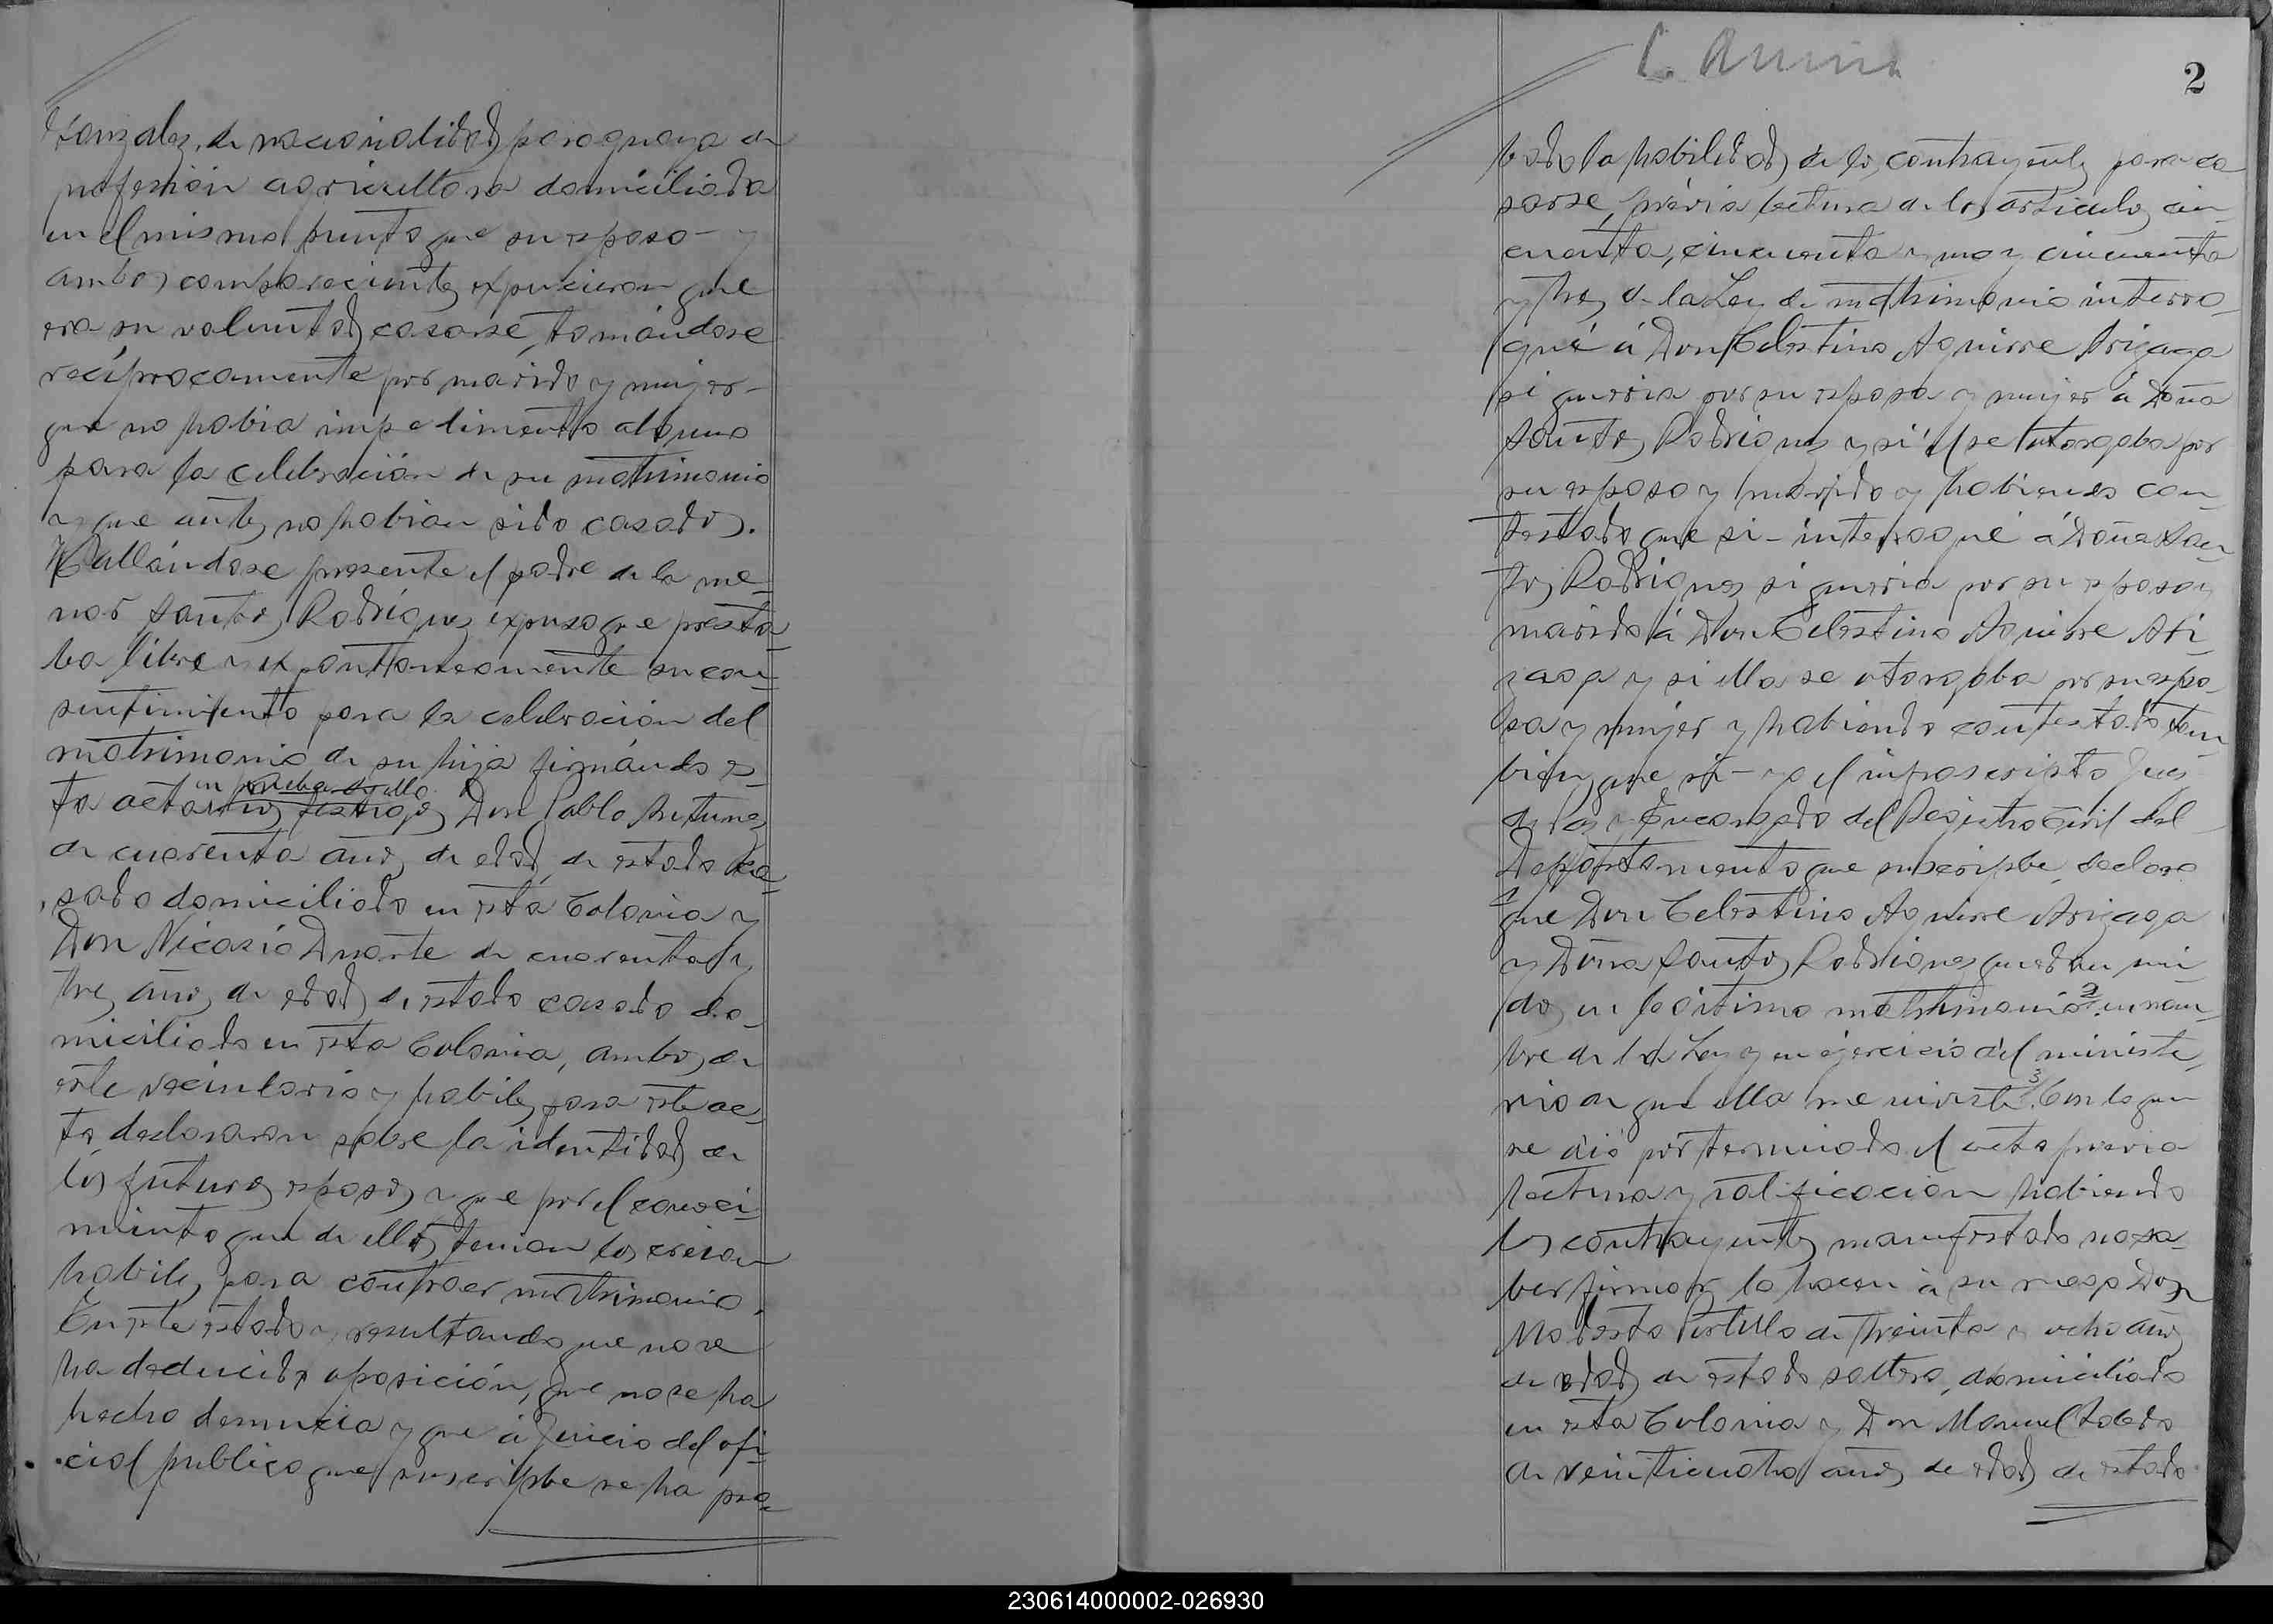 Gonzalez, de nacionalidad paraguaya de
profesión agricultora domiciliada
en el mismo punto que su esposo - y
ambos comparecientes expucieron que
era su voluntad casarse, tomándose
recíprocamente por marido y mujer -
que no habia impedimento alguno
para la celebración de su matrimonio
y que antes no habian sido casados.
Hallándose presente el padre de la me-
nor Santos Rodríguez expuso que presta-
ba libre y expontaneamente su con-
sentimiento para la celebración del
matrimonio de su hija firmándo es-
en prueba de ello
ta acta los testigos Don Pablo Antunez
de cuarenta años de edad, de estado ca-
sado domiciliado en esta Colonia y
Don Nicasio Duarte de cuarenta y
tres años de edad de estado casado do-
miciliado en esta Colonia, ambos de
este vecindario y habiles para este ac-
to, declararon sobre la identidad de
los futuros esposos y que por el conoci-
miento que de ellos tenian los creian
habiles para contraer matrimonio.
En este estado y resultando que no se
ha deducido oposición, que no se ha
hecho denuncia y que á Juicio del ofi-
cial publico que suscribe se ha pro-
2
bado la habilidad de los contrayentes para ca
sarse, prévia lectura de los articulos cin-
cuenta, cincuenta y uno y cincuenta
y tres de la Ley de matrimonio interro-
gué á Don Celestino Aguirre Arizaga
si querria por su esposa y mujer á Doña
Santos Rodriguez y si él se otorgaba por
su esposo y marido y habiendo con-
testado que si - interrogué á Doña San-
tos Rodriguez si queria por su esposo y
marido á Don Celestino Aguirre Ari-
zaga y si ella se otorgaba por su espo-
sa y mujer y habiendo contestado tam
bien que si - yo el infrascripto Juez
de Paz y Encargado del Registro Civil del
Departamento que suscribe, declaro
que Don Celestino Aguirre Arizaga
y Doña Santos Rodriguez quedan uni-
dos en legitimo matrimonio² en nom-
bre de la Ley y en ejercicio del ministe-
rio de que ella me inviste³. Con lo que
se dió por terminado el acto previa
lectura y ratificacion habiendo
los contrayentes manifestado no sa-
ber firmar lo hacen á su ruego Don
Modesto Portillo de treinta y ocho años
de edad de estado soltero, domiciliado
en esta Colonia y Don Manuel Toledo
de veinticuatro años de edad de estado
230614000002-026930